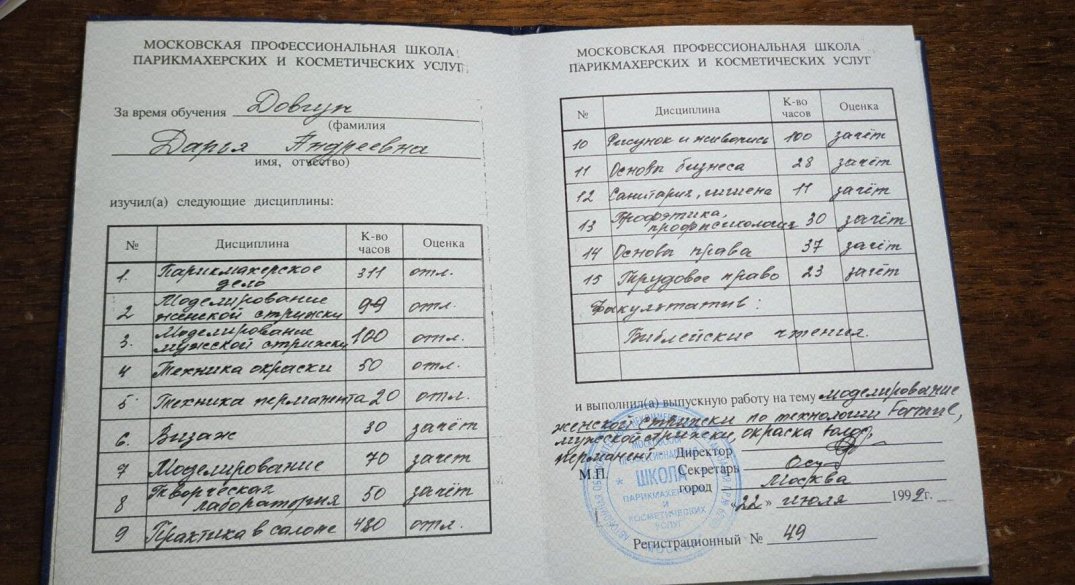 МОСКОВСКАЯ ПРОФЕССИОНАЛЬНАЯ ШКОЛА
ПАРИКМАХЕРСКИХ И КОСМЕТИЧЕСКИХ УСЛУГ
За время обучения Довгун
(фамилия
Дарья Андреевна
имя, отчество)
изучил(а) следующие дисциплины:
№ Дисциплина К-во часов Оценка
1. Парикмахерское дело 311 отл.
2 Моделирование женской стрижки 99 отл.
3. Моделирование мужской стрижки 100 отл.
4 Техника окраски 50 отл.
5 Техника перманента 20 отл.
6. Визаж 30 зачёт
7 Моделирование 70 зачет
8 Творческая лаборатория 50 зачёт
9 Практика в салоне 480 отл.
МОСКОВСКАЯ ПРОФЕССИОНАЛЬНАЯ ШКОЛА
ПАРИКМАХЕРСКИХ И КОСМЕТИЧЕСКИХ УСЛУГ
№ Дисциплина К-во часов Оценка
10 Рисунок и живопись 100 зачёт
11 Основы бизнеса 28 зачёт
12 Санитария, гигиена 11 зачёт
13 Профэтика, профпсихология 30 зачёт
14 Основы права 37 зачёт
15 Трудовое право 23 зачёт
Факультатив:
Библейские чтения.
и выполнил(а) выпускную работу на тему моделирование
женской стрижки по технологии
мужской стрижки, окраска волос,
перманент
Директор
М.П. Секретарь
город Москва
«22» июля 1999г.
Регистрационный № 49
ШКОЛА
ПАРИКМАХЕРСКИХ
И
КОСМЕТИЧЕСКИХ
УСЛУГ
МОСКВА